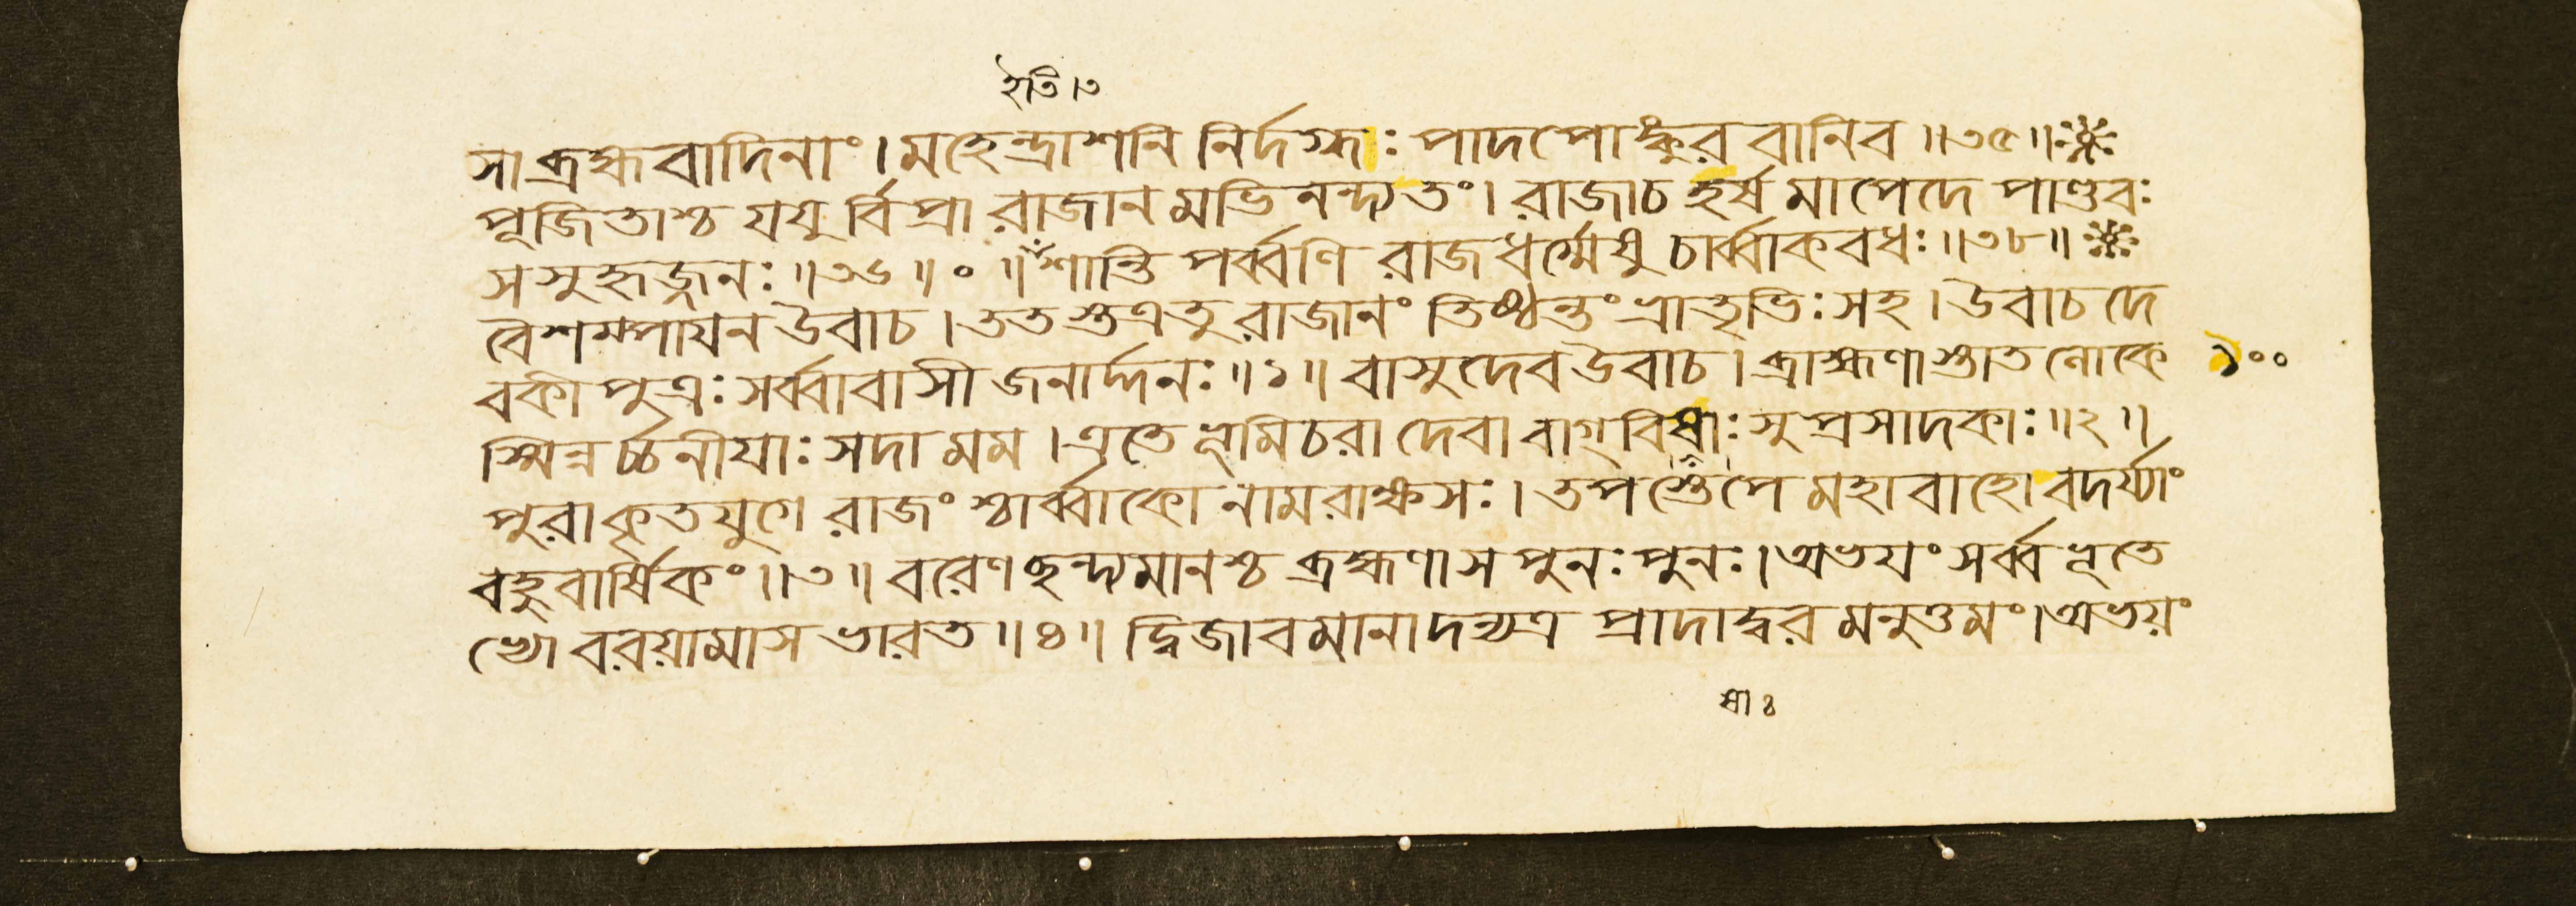 ইতি।৩
সা ব্রহ্মবাদিনাং। মহেন্দ্রাশনি নির্দগ্ধঃ পাদপোঙ্কুরবানিব॥৩৫॥
পূজিতাশ্চ যযুর্বিপ্রা রাজানমভিনন্দ্য তং। রাজা চ হর্ষমাপেদে পাণ্ডবঃ
সসুহৃজ্জনঃ॥৩৬॥০॥ শান্তি পর্ব্বণি রাজধর্ম্মেষু চার্ব্বাকবধঃ॥৩৮॥
বৈশম্পাযন উবাচ। ততস্তত্র তু রাজানং তিষ্ঠন্তং ভ্রাতৃভিঃ সহ। উবাচ দে
বকী পুত্রঃ সর্ব্বাবাসী জনার্দ্দনঃ॥১॥ বাসুদেব উবাচ। ব্রাহ্মণাস্তাত লোকে ১০০
স্মিন্নর্চ্চনীযাঃ সদা মম। এতে ভূমিচরা দেবা বাগ্‌বিষাঃ সুপ্রসাদকাঃ॥২॥
পুরা কৃতযুগে রাজংশ্চার্ব্বাকো নাম রাক্ষসঃ। তপস্তেপে মহাবাহো বদর্য্যাং
বহুবার্ষিকং॥৩॥ বরেণ ছন্দ্যমানশ্চ ব্রহ্মণা স পুনঃ পুনঃ। অভযং সর্ব্বভূতে
ভ্যো বরয়ামাস ভারত॥৪॥ দ্বিজাবমানাদন্যত্র প্রাদাদ্বরমনুত্তমং। অভয়ং